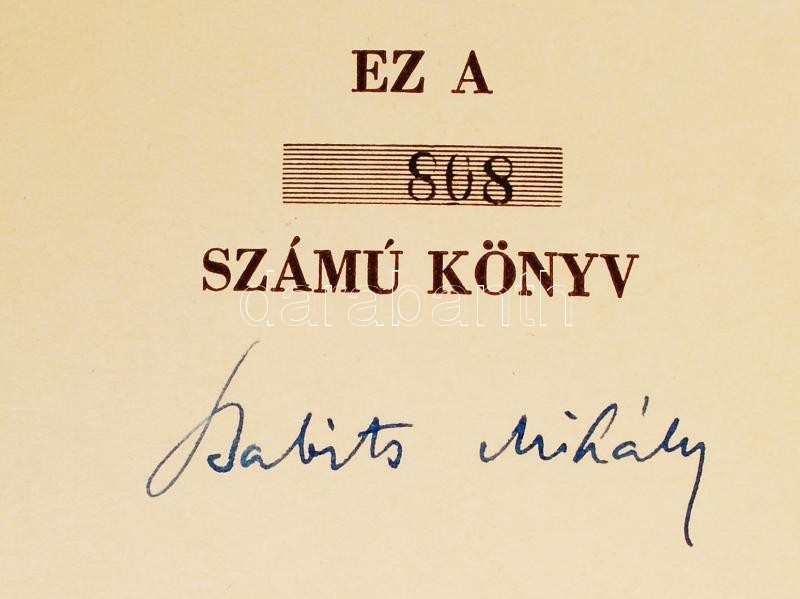 EZ A
808
SZÁMÚ KÖNYV
darabanth
Babits Mihály